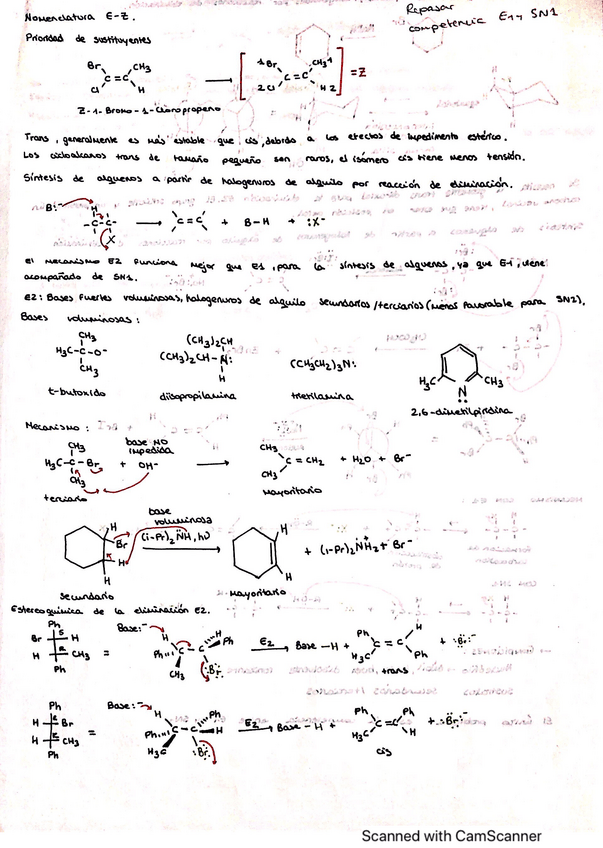 Nomenclatura E-Z.
Repasar
competencia E1 y SN1
Prioridad de sustituyentes
Br CH3
C=C
Cl H
1Br CH3 1
C=C
2Cl H 2
=Z
Z-1-Bromo-1-cloropropeno
Trans, generalmente es más estable que cis, debido a los efectos de impedimento estérico.
Los cicloalcanos trans de tamaño pequeño son raros, el isómero cis tiene menos tensión.
Síntesis de alquenos a partir de halogenuros de alquilo por reacción de eliminación.
B:⁻ H
-C-C- → C=C + B-H + :X⁻
X
El mecanismo E2 funciona mejor que E1, para la síntesis de alquenos, ya que E1, viene
acompañado de SN1.
E2: Bases fuertes voluminosas, halogenuros de alquilo secundarios/terciarios (menos favorable para SN2),
Bases voluminosas:
CH3
H3C-C-O⁻
CH3
t-butoxido
(CH3)2CH
(CH3)2CH-N:
H
diisopropilamina
(CH3CH2)3N:
trietilamina
H3C N CH3
2,6-dimetilpiridina
Mecanismo:
CH3
H3C-C-Br
CH3
terciario
base NO
impedida
+ OH⁻ →
CH3
C=CH2 + H2O + Br⁻
CH3
Mayoritario
H
Br
H
H
secundario
base
voluminosa
(i-Pr)2NH, hν
H
H
Mayoritario
+ (i-Pr)2NH2 + Br⁻
Estereoquímica de la eliminación E2.
Ph
Br S H
H R CH3
Ph
=
Base:⁻ H H
Ph C-C Ph
CH3 Br
E2 → Base-H +
Ph H
C=C
H3C Ph
+ :Br:⁻
trans
Ph
H Br
H CH3
Ph
=
Base:⁻ H Ph
Ph C-C H
H3C Br
E2 → Base-H +
Ph Ph
C=C
H3C H
+ :Br:⁻
cis
Scanned with CamScanner